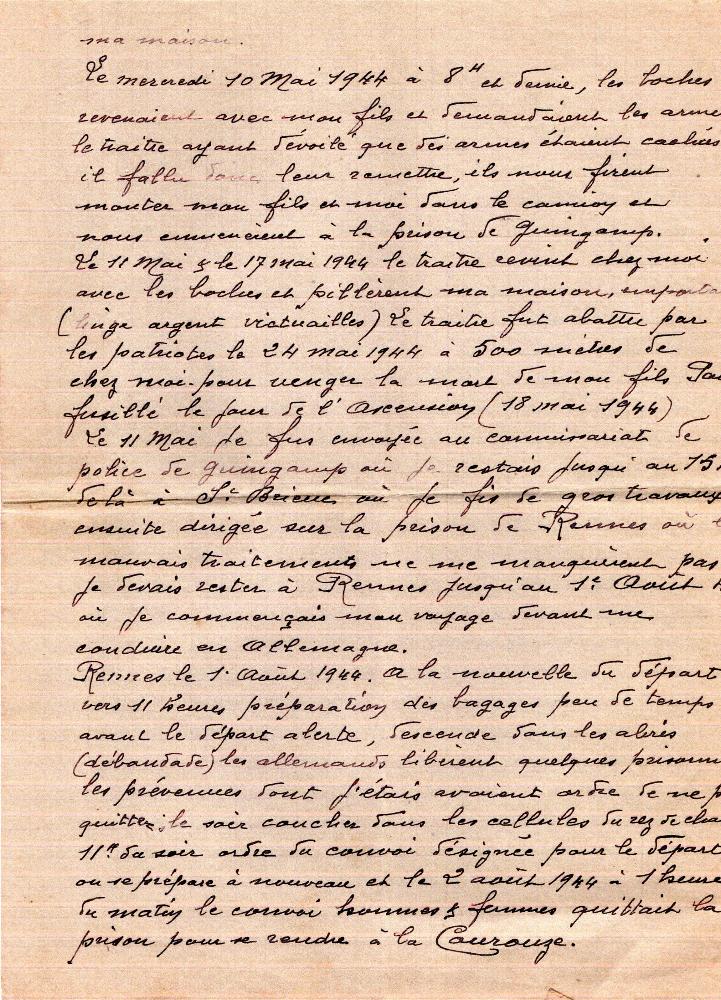 ma maison.
Le mercredi 10 Mai 1944 à 8H et demie, les boches
revenaient avec mon fils et demandaient les arme
le traitre ayant dévoilé que des armes étaient cachées
il fallu donc leur remettre, ils nous firent
monter mon fils et moi dans le camion et
nous emmenèrent à la prison de Guingamp.
Le 11 Mai & le 17 mai 1944 le traitre revint chez moi
avec les boches et pillèrent ma maison, emporta
(linge argent victuailles) Le traitre fut abattu par
les patriotes le 24 mai 1944 à 500 mètres de
chez moi pour venger la mort de mon fils
fusillé le jour de l'Ascension (18 mai 1944)
Le 11 Mai je fus envoyée au commissariat de
police de Guingamp où je restais jusqu'au 15
de là à St Brieuc où je fis de gros travaux
ensuite dirigée sur la prison de Rennes où
mauvais traitements ne me manquèrent pas
Je devais rester à Rennes jusqu'au 1er Août
où je commençais mon voyage devant me
conduire en Allemagne.
Rennes le 1 Août 1944. A la nouvelle du départ
vers 11 heures préparation des bagages peu de temps
avant le départ alerte, descende dans les abris
(débandade) les allemands libèrent quelques prisonn
les prévenues dont j'étais avaient ordre de ne p
quitter, le soir coucher dans les cellules du rez de cha
11H du soir ordre du convoi désignée pour le départ
on se prépare à nouveau et le 2 août 1944 à 1 heure
du matin le convoi hommes & femmes quittait la
prison pour se rendre à la Courouze.